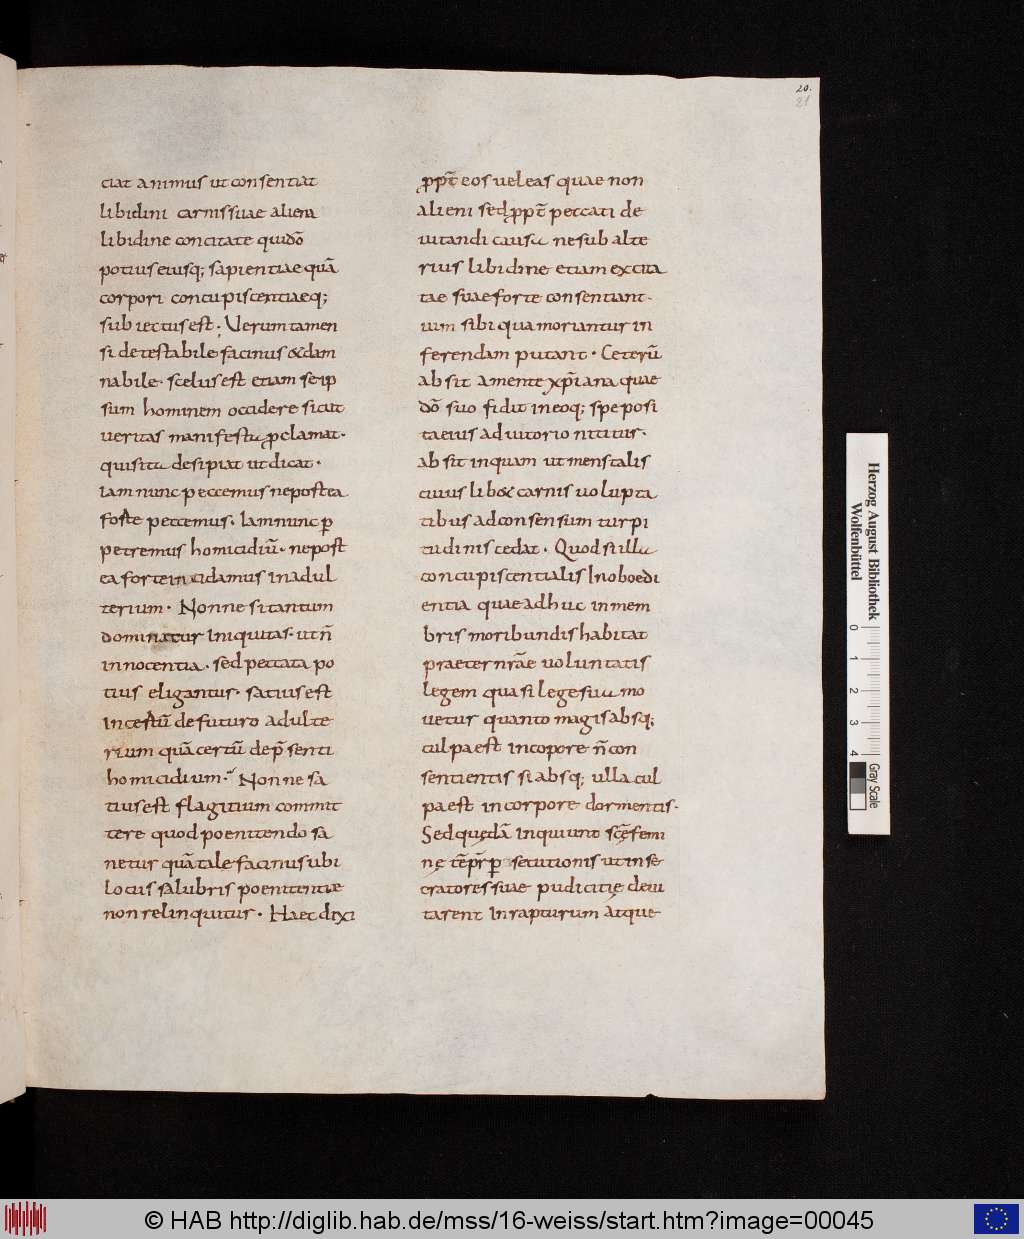 20.
21
ciat animus ut consentiat
libidini carnis suae aliena
libidine concitate qui dō
potius eiusq; sapientiae quā
corpori concupiscentiaeq;
subiectus est; Uerumtamen
si detestabile facinus & dam
nabile· scelus est etiam seip
sum hominem occidere sicut
ueritas manifesta ꝓclamat·
quis ita desipiat ut dicat·
Iam nunc peccemus ne postea
forte peccemus· Iam nunc ꝑ
petremus homicidiū· ne post
ea forte incidamus in adul
terium· Nonne si tantum
dominatur iniquitas· ut ñ
innocentia· sed peccata po
tius eligantur· satius est
incertū de futuro adulte
rium quā certū de p̄senti
homicidium· Nonne sa
tius est flagitium commit
tere quod poenitendo sa
netur quā tale facinus ubi
locus salubris poenitentiae
non relinquitur· Haec dixi
ꝓpt̄ eos uel eas quae non
alieni sed ꝓpt̄ peccati de
uitandi causa ne sub alte
rius libidine etiam excita
tae suae forte consentiant·
uim sibi qua moriantur in
ferendam putant· Ceterū
absit a mente xp̄iana quae
dō suo fidit in eoq; spe posi
ta eius adiutorio nititur·
absit inquam ut mens talis
cuius lib& carnis uolupta
tibus ad consensum turpi
tudinis cedat· Quod si illa
concupiscentialis inoboedi
entia quae adhuc in mem
bris moribundis habitat
praeter nrāe uoluntatis
legem quasi lege sua mo
uetur quanto magis absq;
culpa est in copore ñ con
sentientis si absq; ulla cul
pa est in corpore dormentis·
Sed quędā inquiunt scę̄ femi
nę tēpr̄ ꝑsecutionis ut inse
cratores suae pudicitię deui
tarent in rapturum atque
Herzog August Bibliothek
Wolfenbüttel
0 1 2 3 4
Gray Scale
© HAB http://diglib.hab.de/mss/16-weiss/start.htm?image=00045